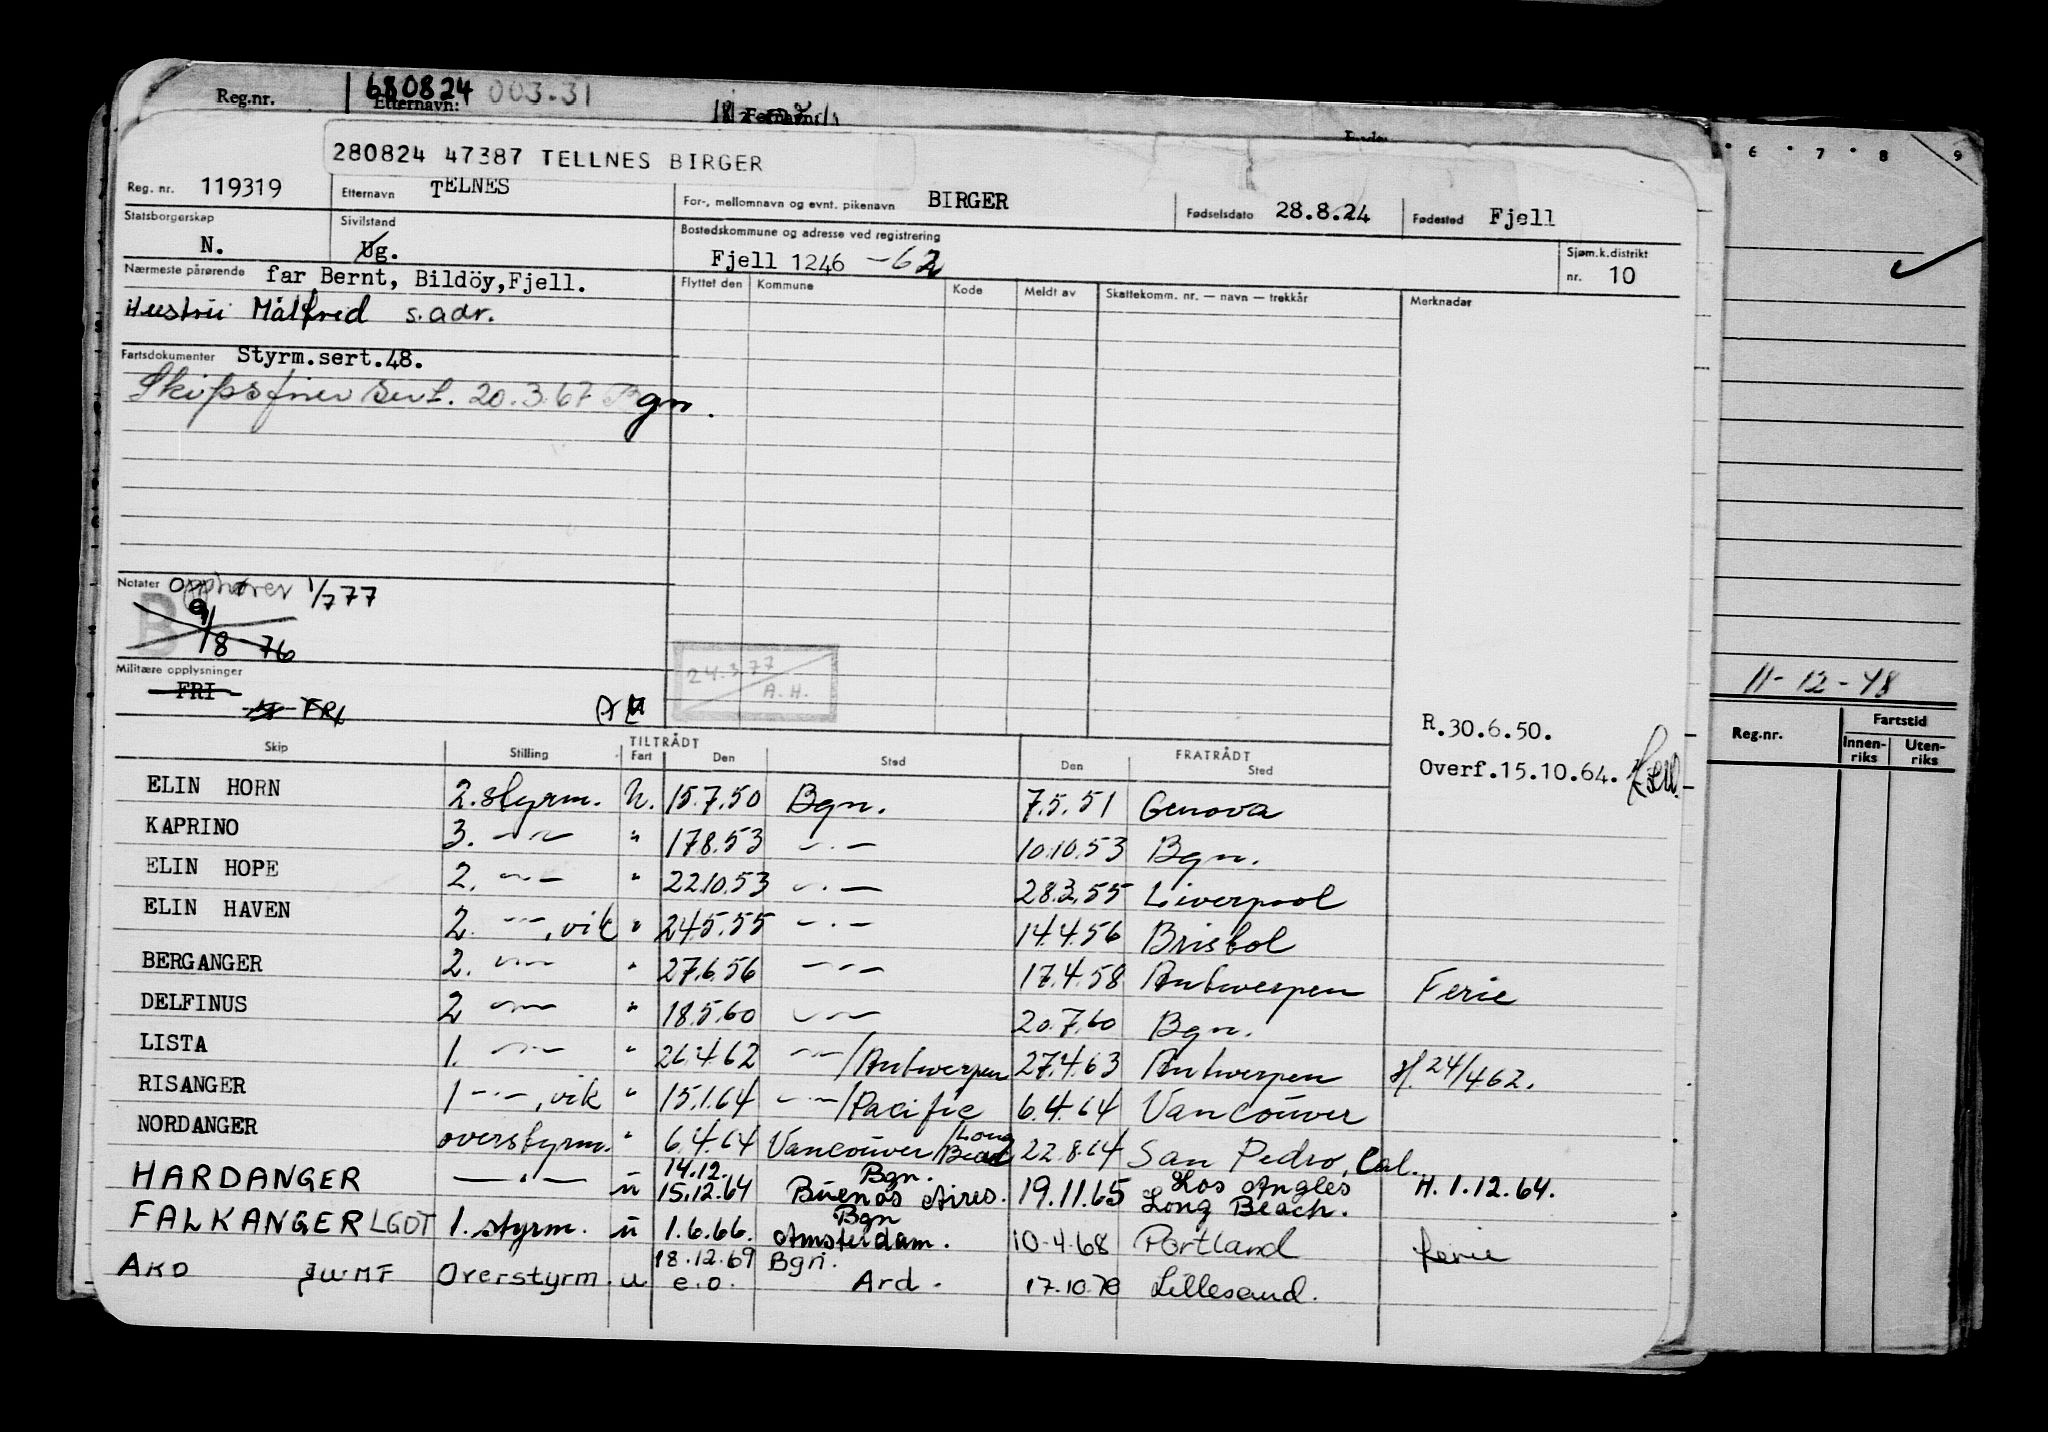 Reg.nr. 680824 003.31
Etternavn: Fornavn:
280824 47387 TELLNES BIRGER
Reg. nr. 119319 Etternavn TELNES For-, mellomnavn og evnt. pikenavn BIRGER Fødselsdato 28.8.24 Fødested Fjell
Statsborgerskap N. Sivilstand Ug. Bostedskommune og adresse ved registrering Fjell 1246 -62 Sjøm.k.distrikt nr. 10
Nærmeste pårørende far Bernt, Bildöy,Fjell.
Hustru Målfrid s.adr.
Flyttet den Kommune Kode Meldt av Skattekomm. nr. — navn — trekkår Merknader
Fartsdokumenter Styrm.sert.48.
Skipsfører sert. 20.3.67 Bgn.
Notater Opphører 1/777
B 9/8-76
Militære opplysninger
FRI
FRI
24.3.77
A.H.
R.30.6.50.
Overf.15.10.64.
TILTRÅDT FRATRÅDT
Skip Stilling Fart Den Sted Den Sted
ELIN HORN 2.styrm. U. 15.7.50 Bgn. 7.5.51 Genova
KAPRINO 3. —"— " 17.8.53 —"— 10.10.53 Bgn.
ELIN HOPE 2. —"— " 22.10.53 —"— 28.3.55 Liverpool
ELIN HAVEN 2. —"—, vik " 24.5.55 —"— 14.4.56 Bristol
BERGANGER 2. —"— " 27.6.56 —"— 17.4.58 Antwerpen Ferie
DELFINUS 2 —"— " 18.5.60 —"— 20.7.60 Bgn.
LISTA 1. —"— " 26.4.62 —"—/Antwerpen 27.4.63 Antwerpen H. 24/462.
RISANGER 1 —"—, vik " 15.1.64 —"—/Pacific 6.4.64 Vancouver
NORDANGER overstyrm. " 6.4.64 Vancouver/Long Beach 22.8.64 San Pedro, Cal.
HARDANGER —"— u 14.12. 15.12.64 Bgn. Buenos Aires. 19.11.65 Los Angles Long Beach. H. 1.12.64.
FALKANGER LGOT 1. styrm. u 1.6.66. Bgn Amsterdam. 10-4.68 Portland ferie
AKO JWMF Overstyrm. u 18.12.69 e.o. Bgn. Ard. 17.10.70 Lillesand.
6 7 8 9
11-12-48
Reg.nr. Fartstid
Innen-riks Uten-riks